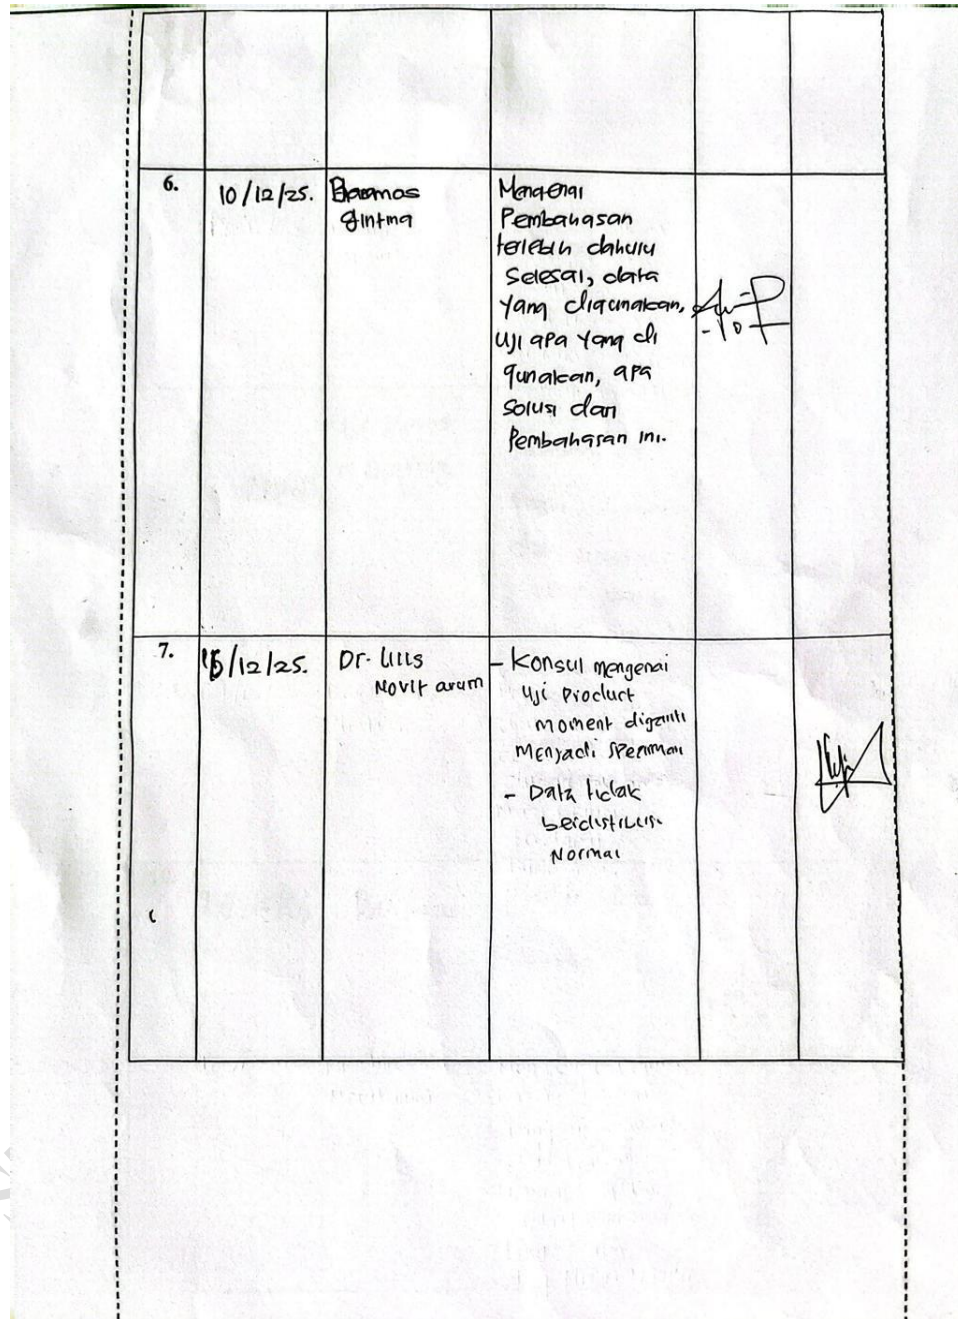 6.
10/12/25.
Mengenai
Pembahasan
terlebih dahulu
Selesai, data
yang digunakan,
Uji apa yang di
gunakan, apa
Solusi dari
Pembahasan ini.
7.
/12/25.
Dr. Lilis
Novit arum
- Konsul mengenai
Uji Product
moment diganti
Menjadi Spearman
- Data tidak
berdistribusi
Normal